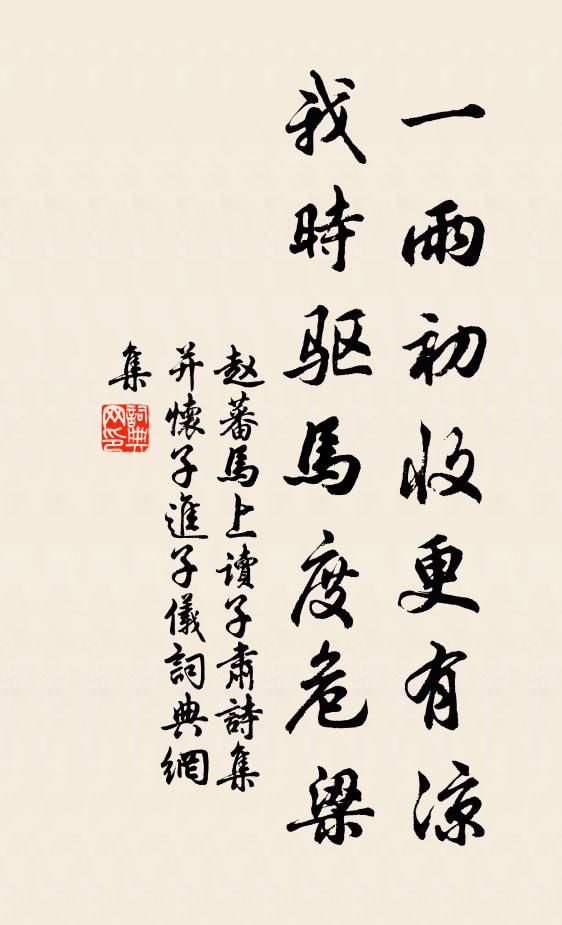 一雨初收更有涼
我時驱馬度危梁
赵蕃馬上讀子肅詩集
并懷子進子儀詞典網
集
詞典
网印